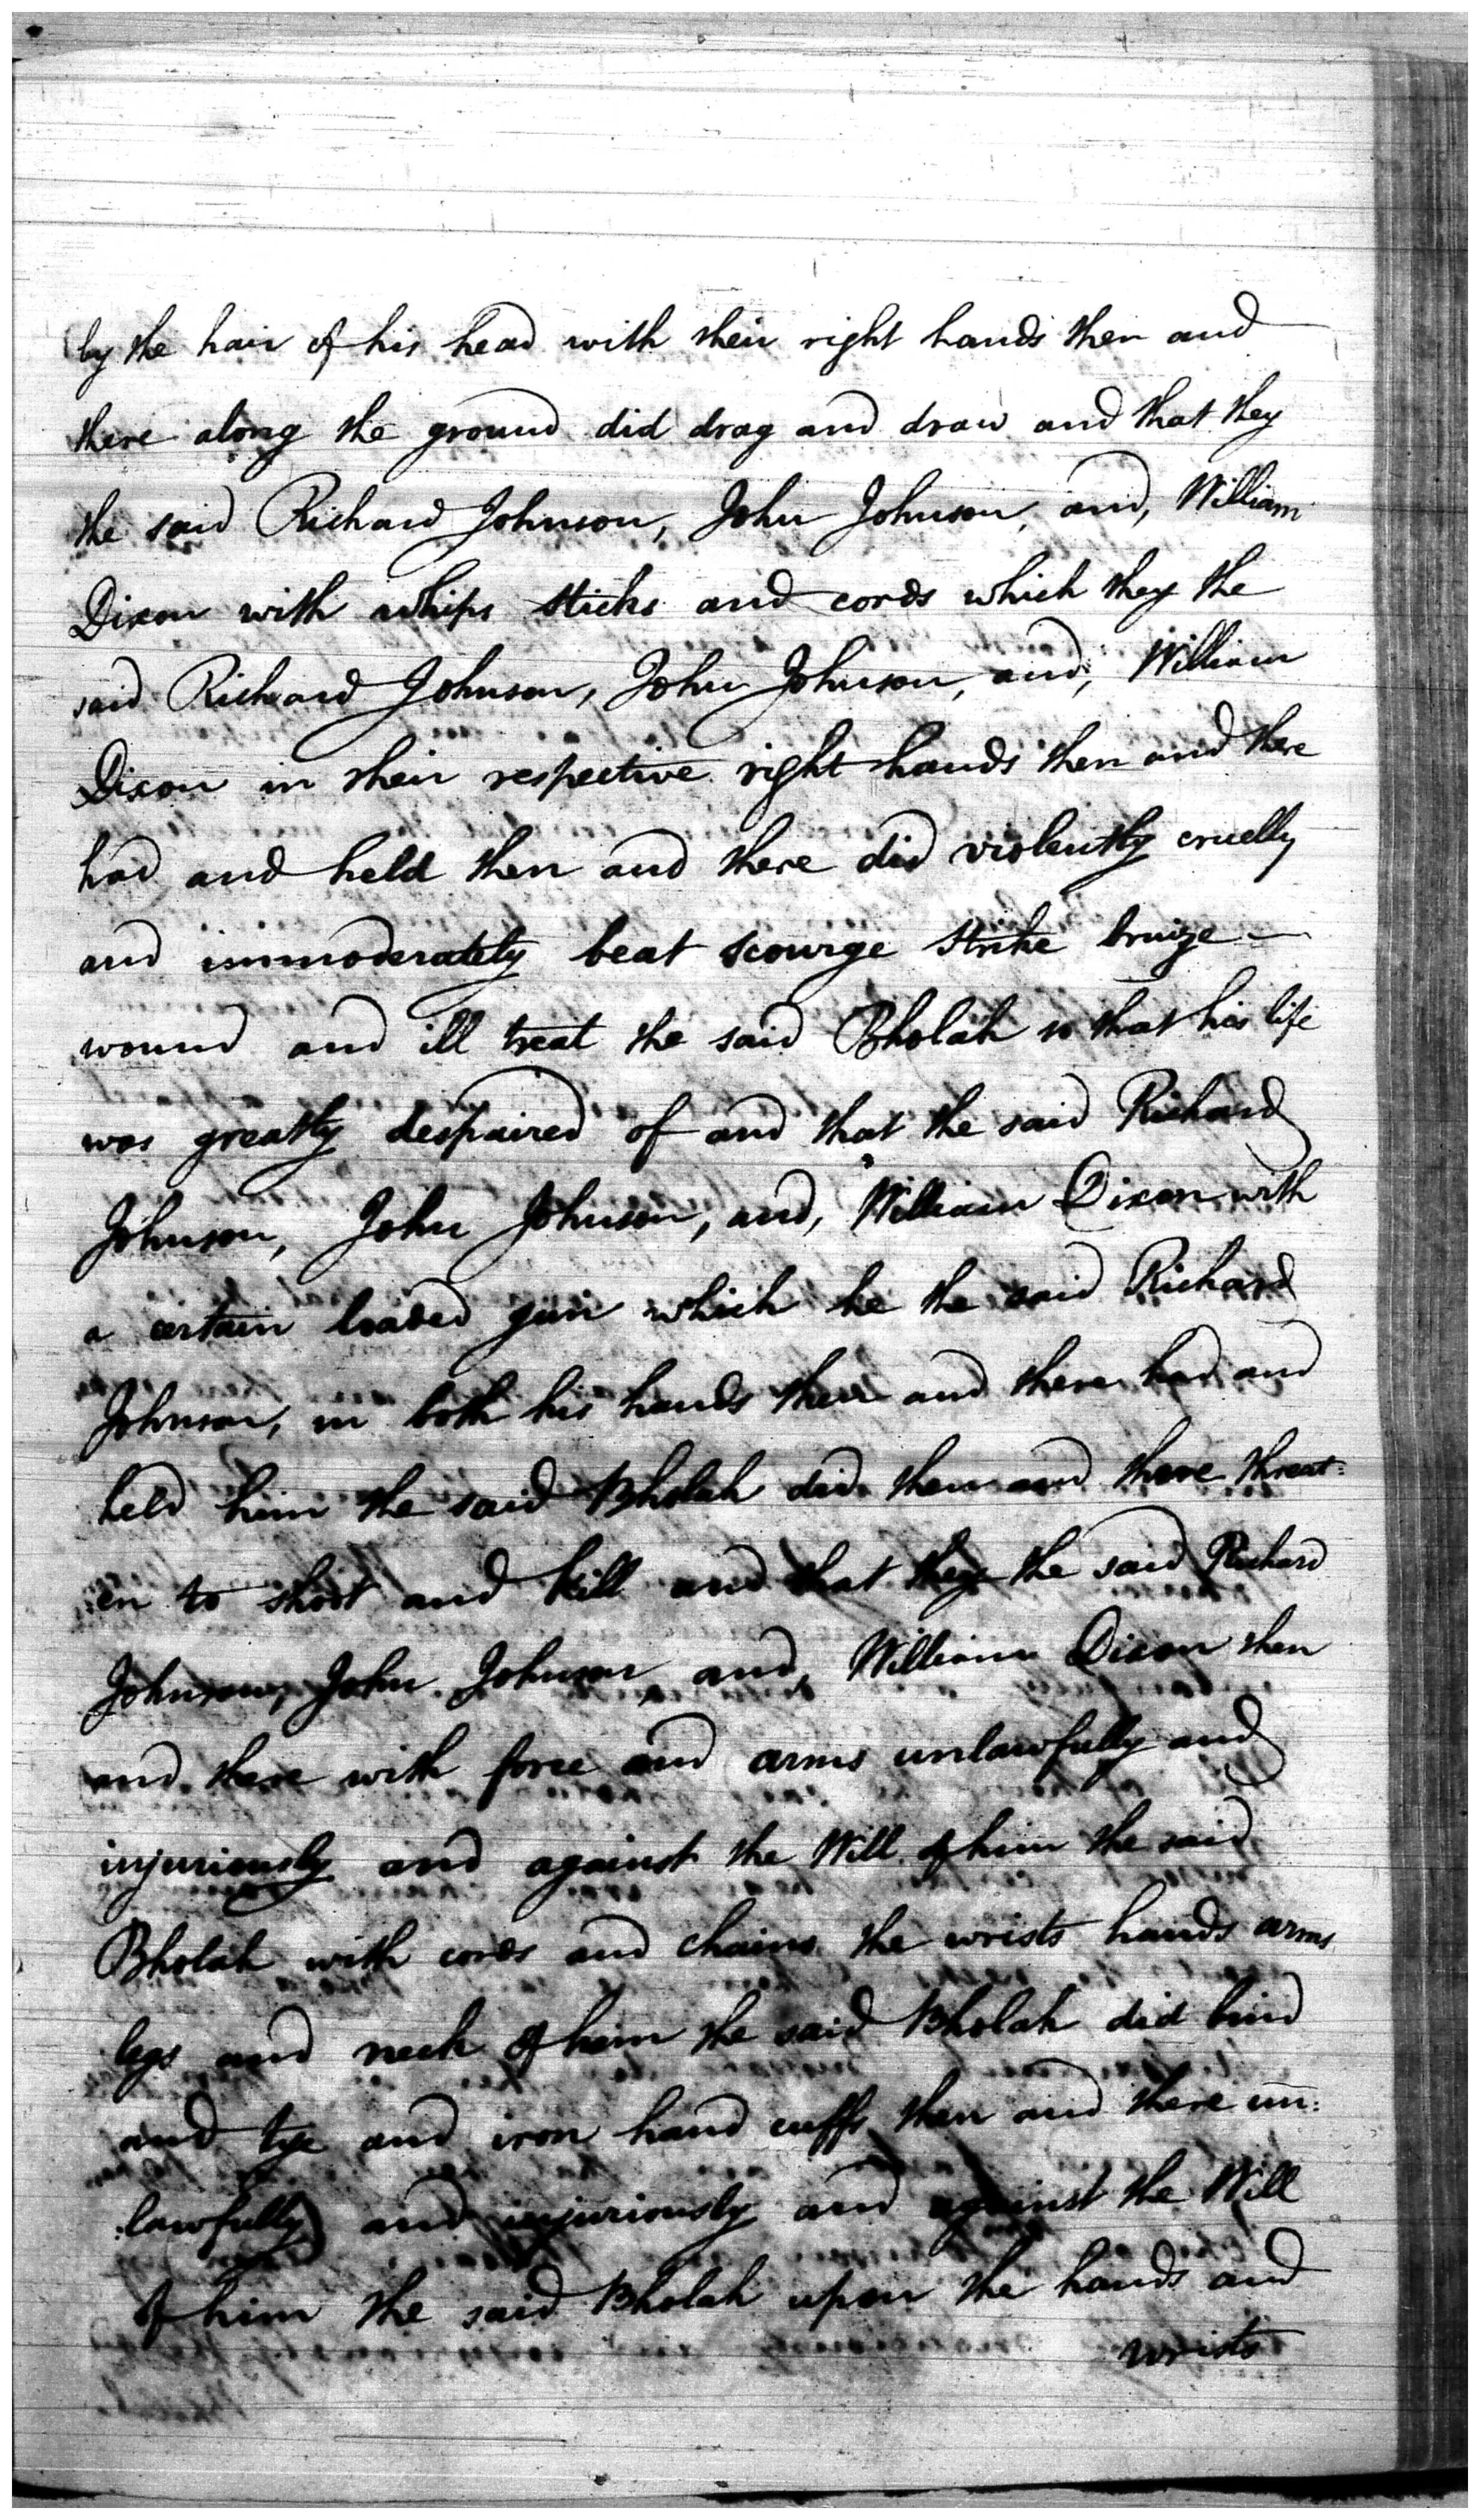 by the hair of his head with their right hands then and
there along the ground did drag and draw and that they
the said Richard Johnson, John Johnson, and, William
Dixon with whips sticks and cords which they the
said Richard Johnson, John Johnson, and, William
Dixon in their respective right hands then and there
had and held then and there did violently cruelly
and immoderately beat scourge strike bruize
wound and ill treat the said Bholah so that his life
was greatly despaired of and that the said Richard
Johnson, John Johnson, and, William Dixon with
a certain loaded gun which he the said Richard
Johnson, in both his hands then and there had and
held him the said Bholah did then and there threat:
:en to shoot and kill and that they the said Richard
Johnson, John Johnson, and, William Dixon then
and there with force and arms unlawfully and
injuriously and against the Will of him the said
Bholah with cords and chains the wrists hands arms
legs and neck of him the said Bholah did bind
and tye and iron hand cuffs then and there un:
:lawfully and injuriously and against the Will
of him the said Bholah upon the hands and
wrists